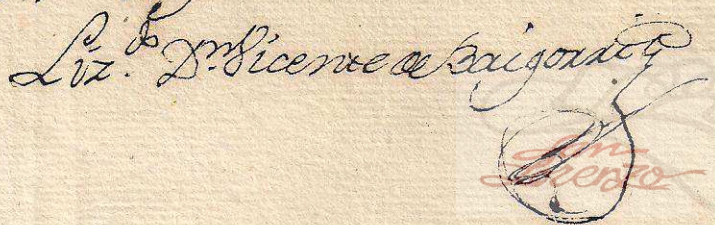 Liz.do Dn Vicente de Baigorri
San
Lorenzo